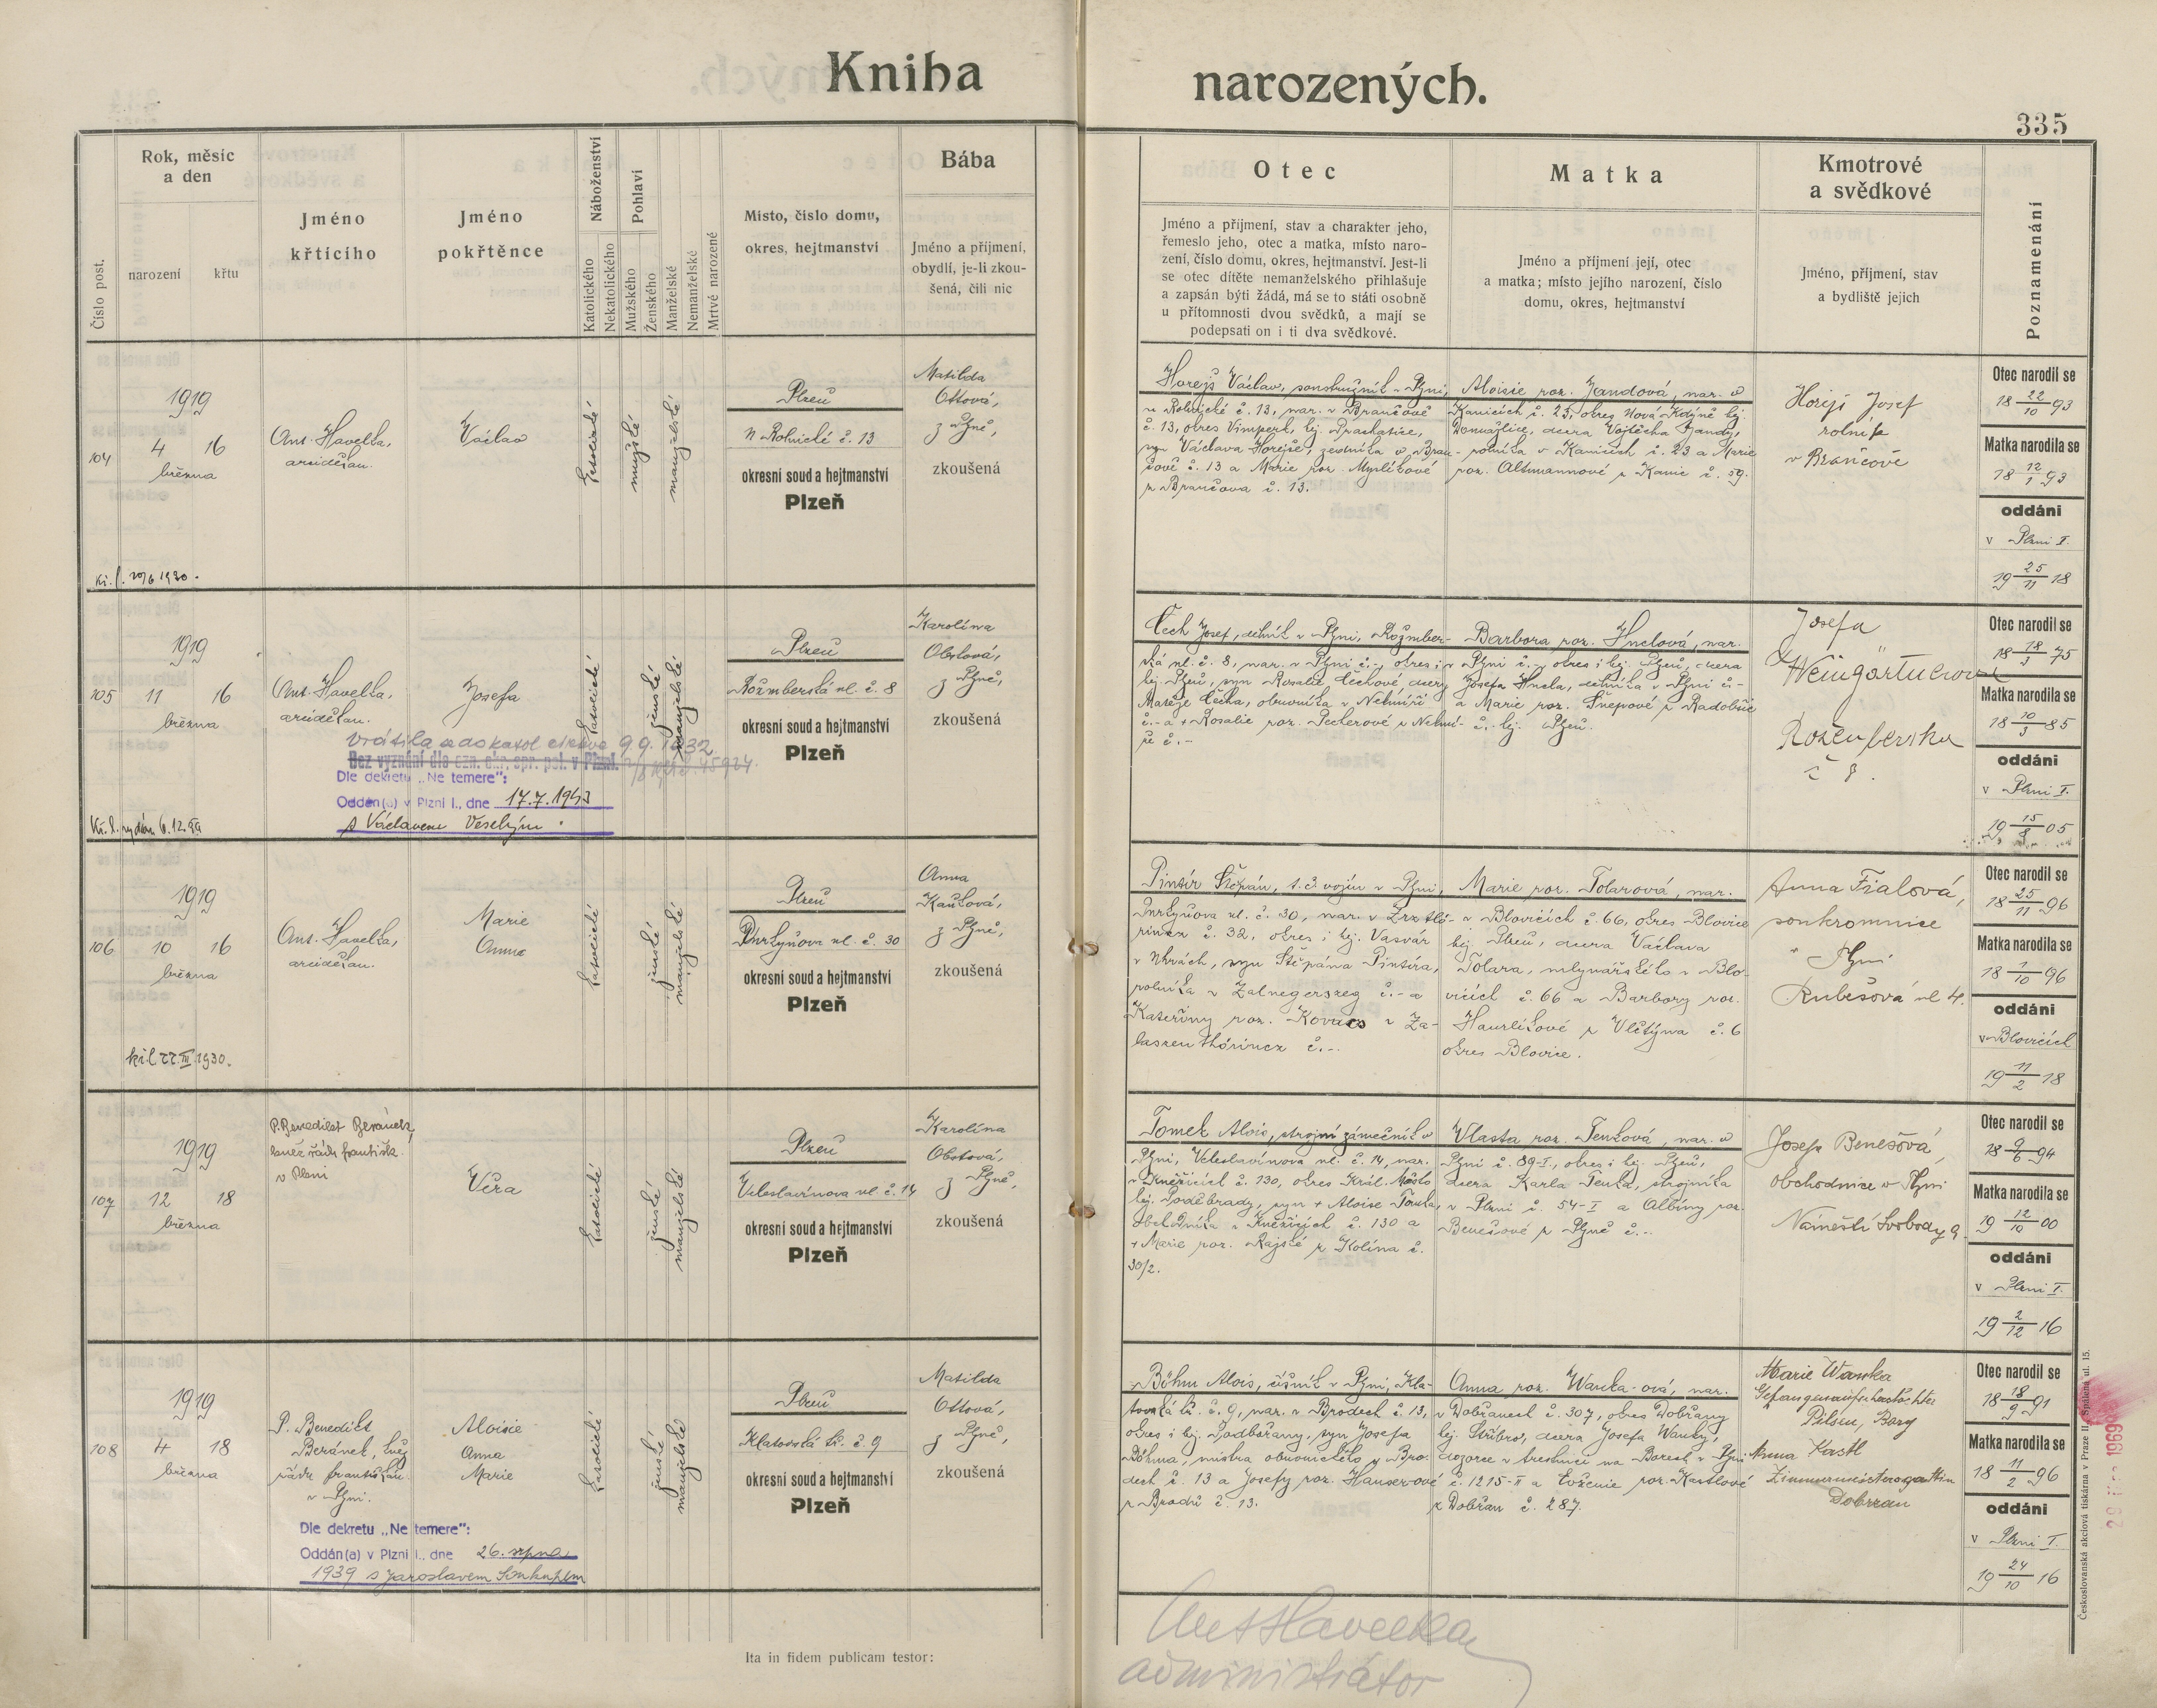 Kniha narozených.
335
Číslo post.
Rok, měsíc
a den
narození
křtu
Jméno
křtícího
Jméno
pokřtěnce
Náboženství
Katolického
Nekatolického
Pohlaví
Mužského
Ženského
Manželské
Nemanželské
Mrtvě narozené
Místo, číslo domu,
okres, hejtmanství
Bába
Jméno a příjmení,
obydlí, je-li zkou-
šená, čili nic
Otec
Jméno a příjmení, stav a charakter jeho,
řemeslo jeho, otec a matka, místo naro-
zení, číslo domu, okres, hejtmanství. Jest-li
se otec dítěte nemanželského přihlašuje
a zapsán býti žádá, má se to státi osobně
u přítomnosti dvou svědků, a mají se
podepsati on i ti dva svědkové.
Matka
Jméno a příjmení její, otec
a matka; místo jejího narození, číslo
domu, okres, hejtmanství
Kmotrové
a svědkové
Jméno, příjmení, stav
a bydliště jejich
Poznamenání
104
1919
4 16
března
Kř. l. 20/6 1930.
Ant. Havelka,
arciděkan.
Václav
katolické
mužské
manželské
Plzeň
n Rolnické č. 13
okresní soud a hejtmanství
Plzeň
Matilda
Ottová,
z Plzně,
zkoušená
Horejš Václav, soustružník v Plzni,
n Rolnické č. 13, nar. v Brančově
č. 13, okres Vimperk, hej. Prachatice,
syn Václava Horejše, zedníka v Bran-
čově č. 13 a Marie roz. Myslíkové
z Brančova č. 13.
Aloisie roz. Jandová, nar. v
Kanicích č. 23, okres Nová Kdyně hej.
Domažlice, dcera Vojtěcha Jandy,
rolníka v Kanicích č. 23 a Marie
roz. Altmannové z Kanic č. 59.
Horejš Josef
rolník
v Brančově
Otec narodil se
18 22/10 93
Matka narodila se
18 12/1 93
oddáni
v Plzni I.
19 25/11 18
105
1919
11 16
března
Kř. l. vydán 6.12.
Ant. Havelka,
arciděkan.
Josefa
katolické
ženské
manželské
Vrátila se do katol církve 9.9.1932.
Bez vyznání dle ozn. okr. spr. pol. v Plzni
Dle dekretu „Ne temere":
Oddán(a) v Plzni I., dne 17.7.1943
s Václavem Veselým.
Plzeň
Rožmberská ul. č. 8
okresní soud a hejtmanství
Plzeň
Karolína
Obstová,
z Plzně,
zkoušená
Čech Josef, dělník v Plzni, Rožmber-
ská ul. č. 8, nar. v Plzni č.-, okres i
hej. Plzeň, syn Rosalie Čechové dcery
Matěje Čecha, obuvníka v Nekmíři
č.- a + Rosalie roz. Pecherové z Nekmí-
ře č.-
Barbora roz. Hnelová, nar.
v Plzni č.-, okres i hej. Plzeň, dcera
Josefa Hnela, dělníka v Plzni č.-
a Marie roz. Šnepové z Radobčic
č.- hej. Plzeň.
Josefa
Weingärtnerová
Rožemberska
č 8.
Otec narodil se
18 18/3 75
Matka narodila se
18 10/3 85
oddáni
v Plzni I.
19 15/8 05
106
1919
10 16
března
kř. l 22.III 1930.
Ant. Havelka,
arciděkan.
Marie
Anna
katolické
ženské
manželské
Plzeň
Purkyňova ul. č. 30
okresní soud a hejtmanství
Plzeň
Anna
Kaulová,
z Plzně,
zkoušená
Pintír Štěpán, t. č. vojín v Plzni,
Purkyňova ul. č. 30, nar. v Zrztlő-
rincz č. 32, okres i hej. Vasvár
v Uhrách, syn Štěpána Pintíra,
rolníka v Zalnegerszeg č.- a
Kateřiny roz. Kovacs v Za-
laszentlőrincz č.-.
Marie roz. Tolarová, nar.
v Blovicích č. 66, okres Blovice
hej. Plzeň, dcera Václava
Tolara, mlynářského v Blo-
vicích č. 66 a Barbory roz.
Haurlíkové z Vlčtýna č. 6
okres Blovice.
Anna Fialová,
soukromnice
v Plzni
Rubešová ul 4.
Otec narodil se
18 25/11 96
Matka narodila se
18 1/10 96
oddáni
v Blovicích
19 11/2 18
107
1919
12 18
března
P. Benedikt Beránek,
kněz řádu františk.
v Plzni
Věra
katolické
ženské
manželské
Plzeň
Veleslavínova ul. č. 14
okresní soud a hejtmanství
Plzeň
Karolína
Obstová,
z Plzně,
zkoušená
Tomek Alois, strojní zámečník v
Plzni, Veleslavínova ul. č. 14, nar.
v Kněžicích č. 130, okres Král. Městec
hej. Poděbrady, syn + Aloise Tomka,
obchodníka v Kněžicích č. 130 a
+ Marie roz. Rajské z Kolína č.
30/2.
Vlasta roz. Tenková, nar. v
Plzni č. 89-I., okres i hej. Plzeň,
dcera Karla Tenka, strojníka
v Plzni č. 54-I a Albíny roz.
Benešové z Plzně č.-.
Josefa Benešová,
obchodnice v Plzni
Náměstí Svobody 9.
Otec narodil se
18 9/6 94
Matka narodila se
19 12/10 00
oddáni
v Plzni I.
19 2/12 16
108
1919
4 18
března
P. Benedikt
Beránek, kněz
řádu františkán.
v Plzni.
Aloisie
Anna
Marie
katolické
ženské
manželské
Dle dekretu „Ne temere":
Oddán(a) v Plzni I., dne 26. srpna
1939 s Jaroslavem Soukupem
Plzeň
Klatovská tř. č. 9
okresní soud a hejtmanství
Plzeň
Matilda
Ottová,
z Plzně,
zkoušená
Böhm Alois, číšník v Plzni, Kla-
tovská tř. č. 9, nar. v Brodech č. 13,
okres i hej. Podbořany, syn Josefa
Böhma, mistra obuvnického v Bro-
dech č. 13 a Josefy roz. Hauserové
z Brodů č. 13.
Anna roz. Wanka-ová, nar.
v Dobřanech č. 307, okres Dobřany
hej. Stříbro, dcera Josefa Wanky,
dozorce v trestnici na Borech v Plzni
č. 1215-II a Evženie roz. Kastlové
z Dobřan č. 287.
Marie Wanka
Pilsen, Bory
Anna Kastl
Zimmermeistersgattin
Dobrzan
Otec narodil se
18 18/9 91
Matka narodila se
18 11/2 96
oddáni
v Plzni I.
19 24/10 16
Ita in fidem publicam testor:
Ant Havelka,
administrátor
Českoslovanská akciová tiskárna v Praze II., Spálená ul. 15.